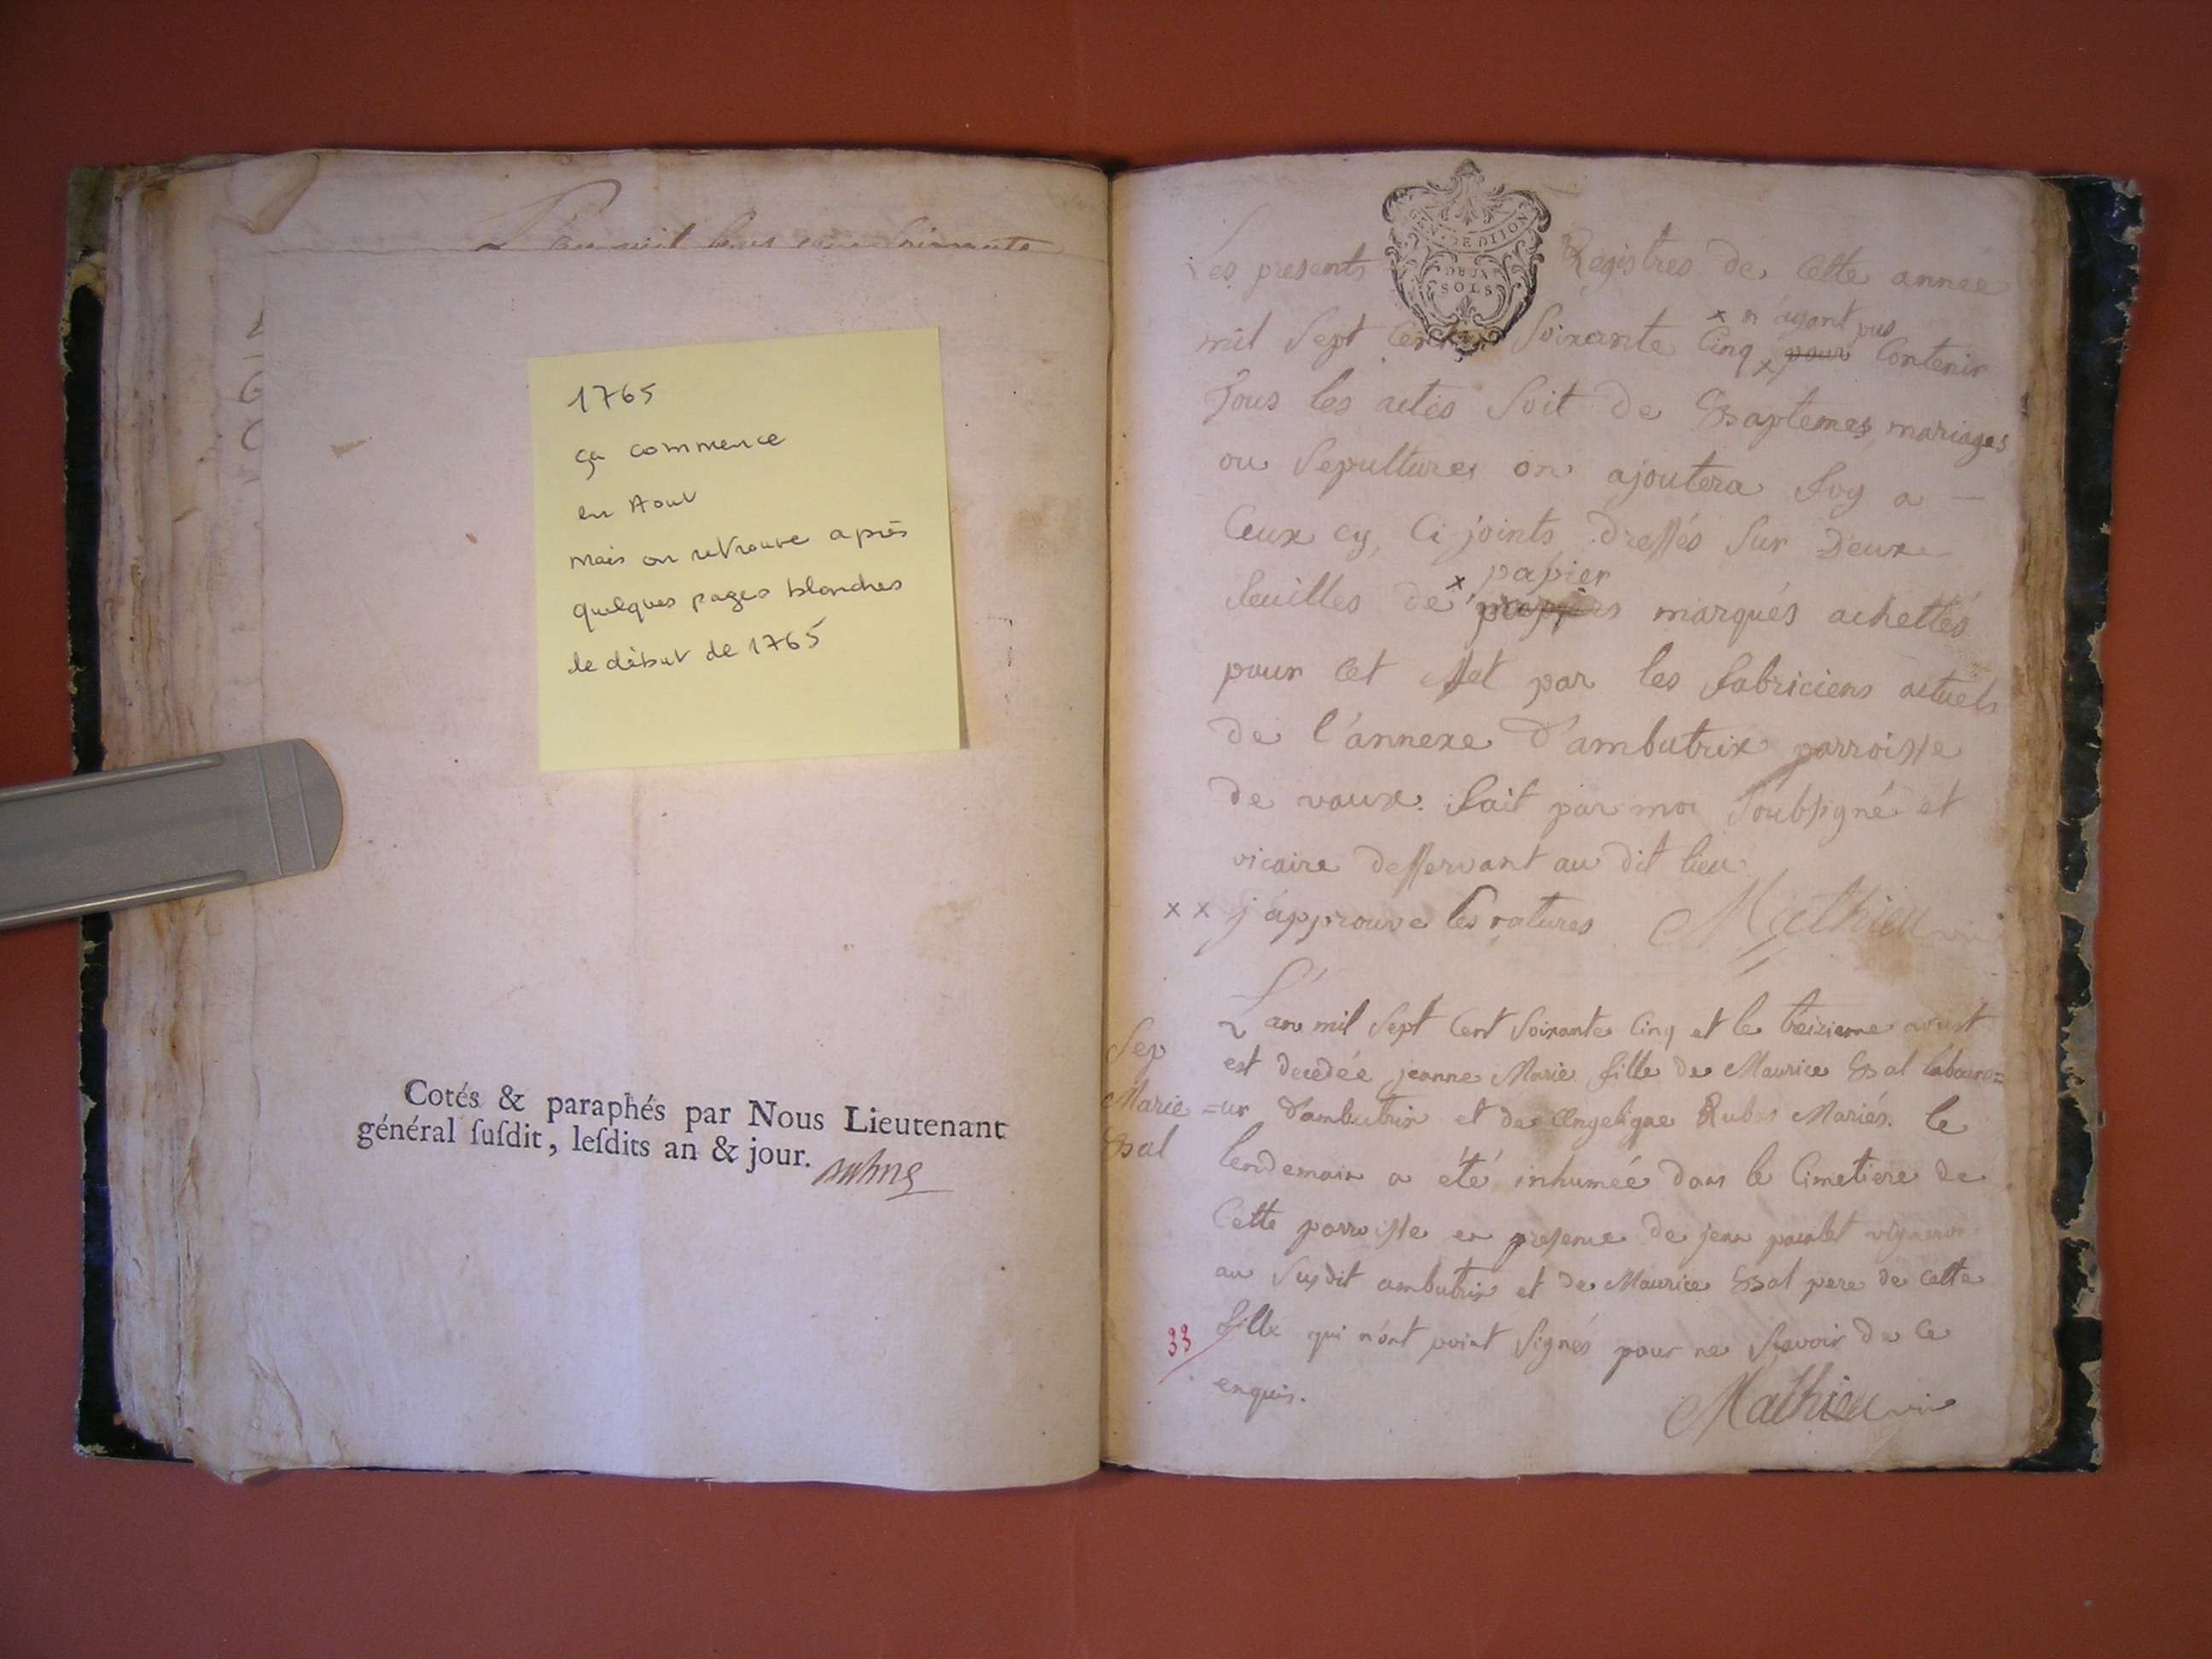 1765
ça commence
en Aout
mais on retrouve après
quelques pages blanches
le début de 1765
Cotés & paraphés par Nous Lieutenant
général ſuſdit, leſdits an & jour.
GEN. DE DIJON
DEUX
SOLS
Les presents Registres de Cette année
x n'ayant pus
mil Sept Cent Soixante Cinq x pour Contenir
Tous les actes Soit de Baptemes, mariages
ou Sepultures on ajoutera foy a —
Ceux cy, Ci joints dressés Sur Deux
x papier
feuilles de marqués achettés
pour Cet effet par les fabriciens actuels
de l'annexe d'ambutrix parroisse
de vaux. fait par moi Soubsigné et
vicaire desservant au dit lieu
x x j'approuve les ratures Mathieu vic
L'an mil Sept Cent Soixante Cinq et le treizieme aoust
est decedée jeanne Marie fille de Maurice Bal laboure=
=ur d'ambutrix et de Angelique Mariés. le
lendemain a été inhumée dans le Cimetiere de
Cette parroisse en presence de jean vigneron
au Susdit ambutrix et de Maurice Bal pere de Cette
fille qui n'ont point Signés pour ne Scavoir de Ce
enquis.
Mathieu vic
Sep
Marie
Bal
33